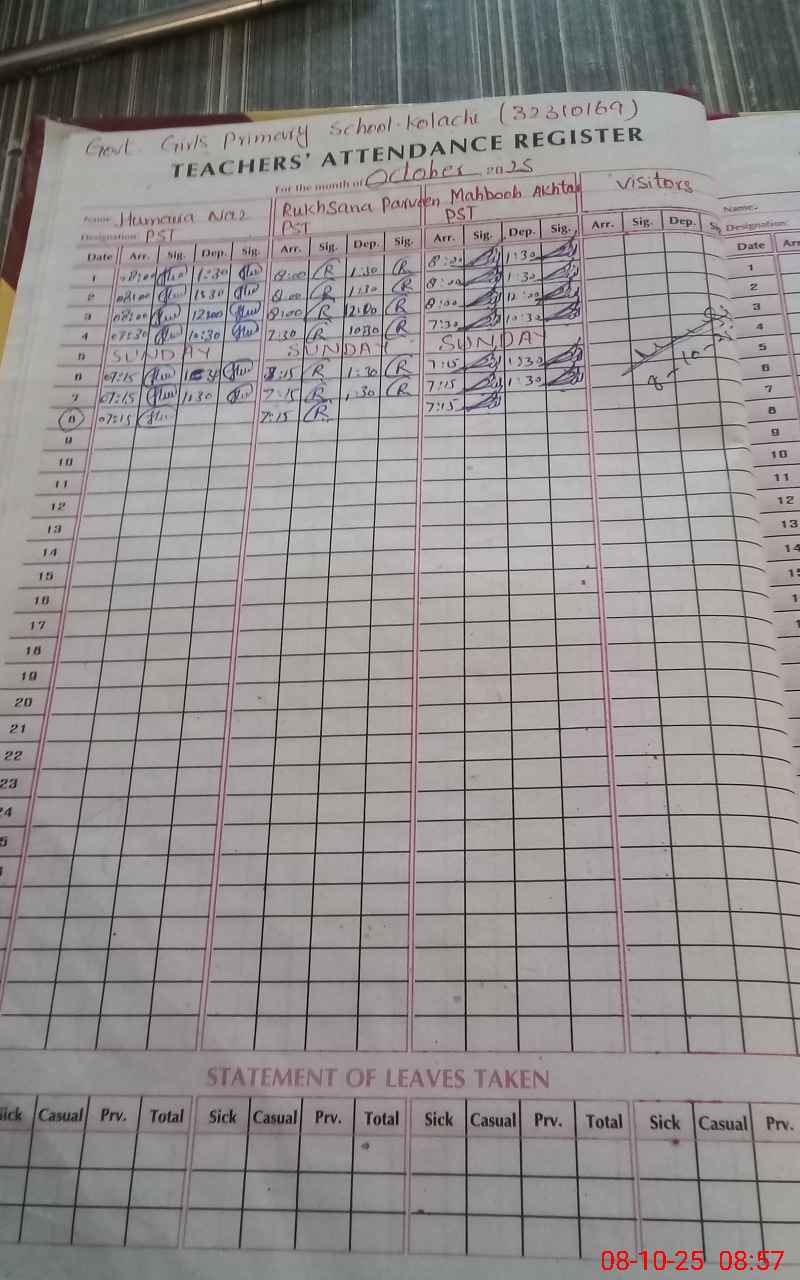 Govt. Girls Primary School. Kolachi (32310169)
TEACHERS' ATTENDANCE REGISTER
For the month of October 2025
Name Humaira Naz Rukhsana Parveen Mahboob Akhtar Visitors Name:
Designation PST PST PST Designation:
Date Arr. Sig. Dep. Sig. Arr. Sig. Dep. Sig. Arr. Sig. Dep. Sig. Arr. Sig. Dep. Date
1 08:00 1:30 8:00 R 1:30 R 8:00 1:30 1
2 08:00 1:30 8:00 R 1:30 R 8:00 1:30 2
3 08:00 12:00 8:00 R 12:00 R 8:00 12:00 3
4 07:30 10:30 7:30 R 10:30 R 7:30 10:30 4
5 SUNDAY SUNDAY SUNDAY 5
6 07:15 1:30 R 1:30 R 7:15 1:30 6
7 07:15 1:30 7:15 R 1:30 R 7:15 1:30 7
8 07:15 7:15 R 7:15 8
9 9
10 10
11 11
12 12
13 13
14 14
15
16
17
18
19
20
21
22
23
STATEMENT OF LEAVES TAKEN
Sick Casual Prv. Total Sick Casual Prv. Total Sick Casual Prv. Total Sick Casual Prv.
08-10-25 08:57